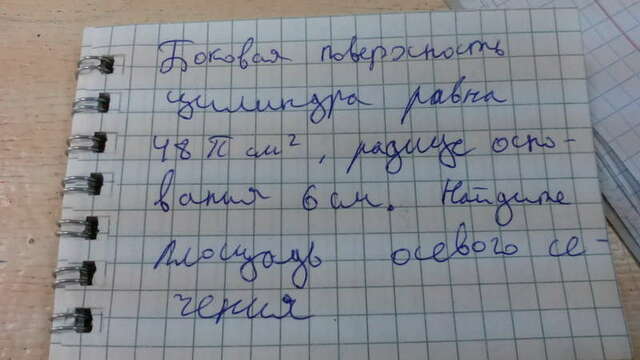 Боковая поверхность
цилиндра равна
48 π см², радиус осно-
вания 6 см. Найдите
площадь осевого се-
чения